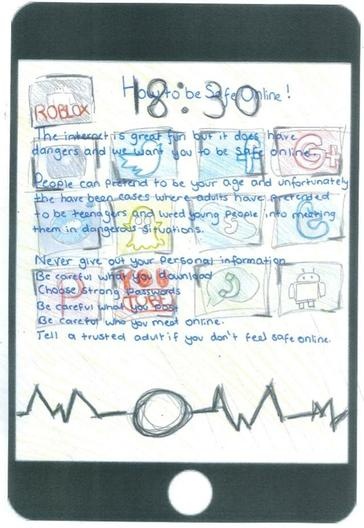 How to be Safe Online!
18:30
ROBLOX
The internet is great fun but it does have
dangers and we want you to be safe online.
People can pretend to be your age and unfortunately
the have been cases where adults have pretended
to be teenagers and lured young people into meeting
them in dangerous situations.
Never give out your personal information
Be careful what you download
Choose strong passwords
Be careful what you post
Be careful who you meet online.
Tell a trusted adult if you don't feel safe online.